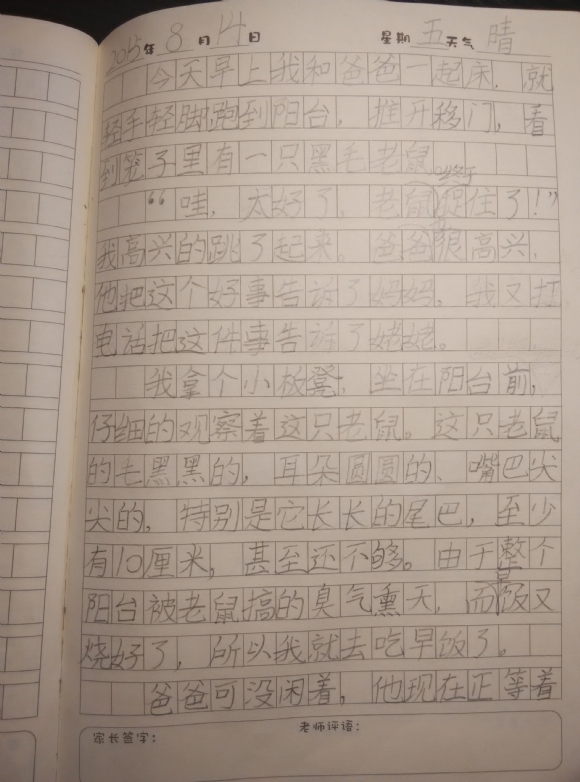 2015年8月14日 星期五天气晴
今天早上我和爸爸一起床，就
轻手轻脚跑到阳台，推开移门，看
到笼子里有一只黑毛老鼠。
终于
“哇，太好了，老鼠捉住了！”
我高兴的跳了起来。爸爸很高兴，
他把这个好事告诉了妈妈，我又打
电话把这件事告诉了姥姥。
我拿个小板凳，坐在阳台前，
仔细的观察着这只老鼠。这只老鼠
的毛黑黑的，耳朵圆圆的、嘴巴尖
尖的，特别是它长长的尾巴，至少
有10厘米，甚至还不够。由于整个
阳台被老鼠搞的臭气熏天，而饭又
烧好了，所以我就去吃早饭了。
爸爸可没闲着，他现在正等着
家长签字： 老师评语：